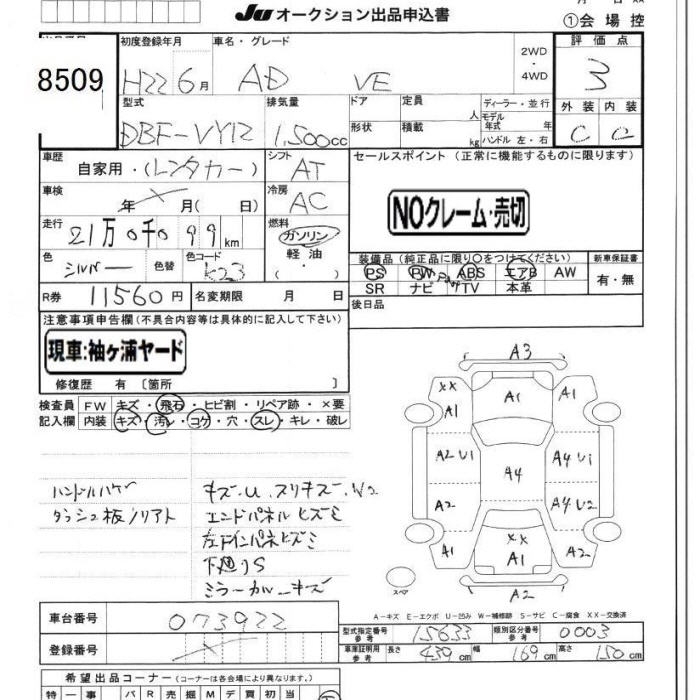 JU オークション出品申込書
①会 場 控
8509
初度登録年月 車名・グレード 2WD ・ 4WD 評 価 点
H22 6月 AD VE 3
型式 排気量 ドア 定員 人 ディーラー・並行 外 装 内 装
DBF-VY12 1,500cc 形状 積載 kg モデル年式 年 ハンドル 左・右 C C
車歴 自家用・(レンタカー) シフト AT セールスポイント (正常に機能するものに限ります)
車検 年 月( 日) 冷房 AC
NOクレーム・売切
走行 21万0千099km 燃料 ガソリン 軽 油 ( ・ )
色 シルバー 色替 色コード K23
装備品 (純正品に限り○をつけてください) 新車保証書
PS PW ABS エアB AW 有・無
SR ナビ TV 本革
R券 11560円 名変期限 月 日 後日品
注意事項申告欄 (不具合内容等は具体的に記入して下さい)
現車:袖ヶ浦ヤード
修復歴 有 〔箇所 〕
検査員 FW キズ・飛石・ヒビ割・リペア跡・×要
記入欄 内装 キズ・汚レ・コゲ・穴・スレ・キレ・破レ
ハンドルハゲ キズ・U.スリキズ.W2
ダッシュ板ノリアト エンドパネルヒズミ
左ドインパネヒズミ
下廻りS
ミラーカバーキズ
A3
XX A1 A1 A1
A2 U1 A4 A4 U1
A2 A4 U2
A1 XX A1 A2
A2
スペア
A-キズ E-エクボ U-凹み W-補修跡 S-サビ C-腐食 XX-交換済
車台番号 073922
型式指定番号 参考 15633 類別区分番号 参考 0003
登録番号
車庫証明用 参考 長さ 439cm 幅 169cm 高さ 150cm
希望出品コーナー (コーナーは各会場により異なります。)
特 一 事 バ R 売 掘 M デ 買 初 当